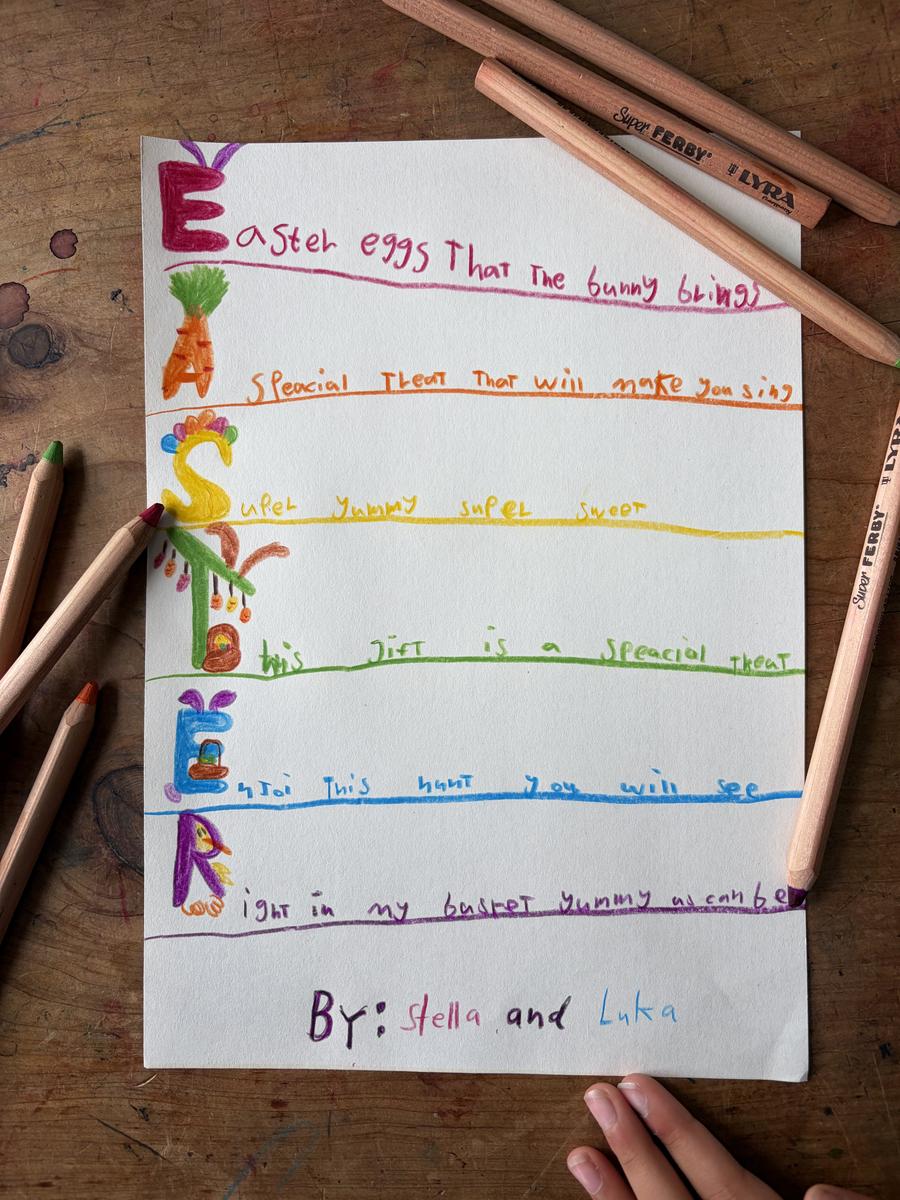 Easter eggs That The bunny brings
A Speacial Treat That will make you sing
Super yummy super sweet
This gift is a speacial treat
Enjoi This hunt you will see
Right in my basket yummy as can be
By: Stella and Luka
Super FERBY LYRA Germany
Super FERBY LYRA